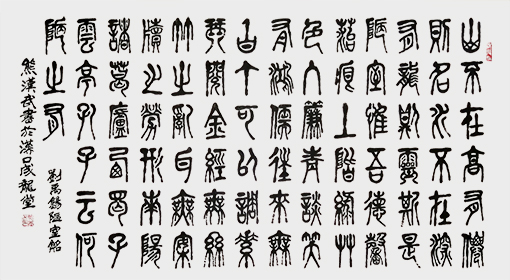 山不在高有僊
則名水不在深
有龍斯靈斯是
陋室惟吾德馨
苔痕上階綠艸
色入簾青談笑
有鴻儒往來無
白丁可以調素
琴閱金經無絲
竹之亂耳無案
牘之勞形南陽
諸葛廬西蜀子
雲亭孔子云何
陋之有
劉禹錫陋室銘
熊漢武書於漢口成龍堂